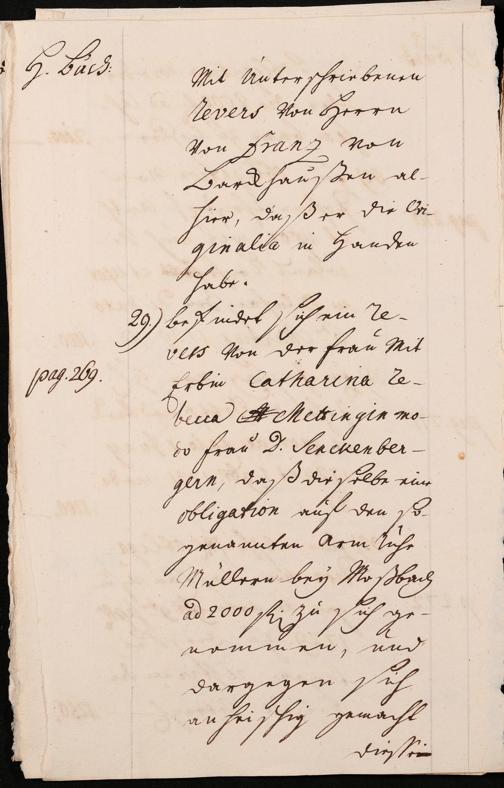 Mit Unterschriebenen
revers Von Herrn
Von Franz von
Barckhaußen al-
hier, daß er die Ori-
ginalia in Handen
habe.
29.) befindet sich ein re-
vers Von der Frau Mit
pag. 269.
Erbin Catharina Re-
becca Mettingin mo-
do Frau D. Senckenber-
gern, daß dieselbe eine
obligation auf den so-
genannten Arm
Müllern bey Moßbach
ad 2000 fl. zu sich ge-
nommen, und
dargegen sich
anheischig gemacht